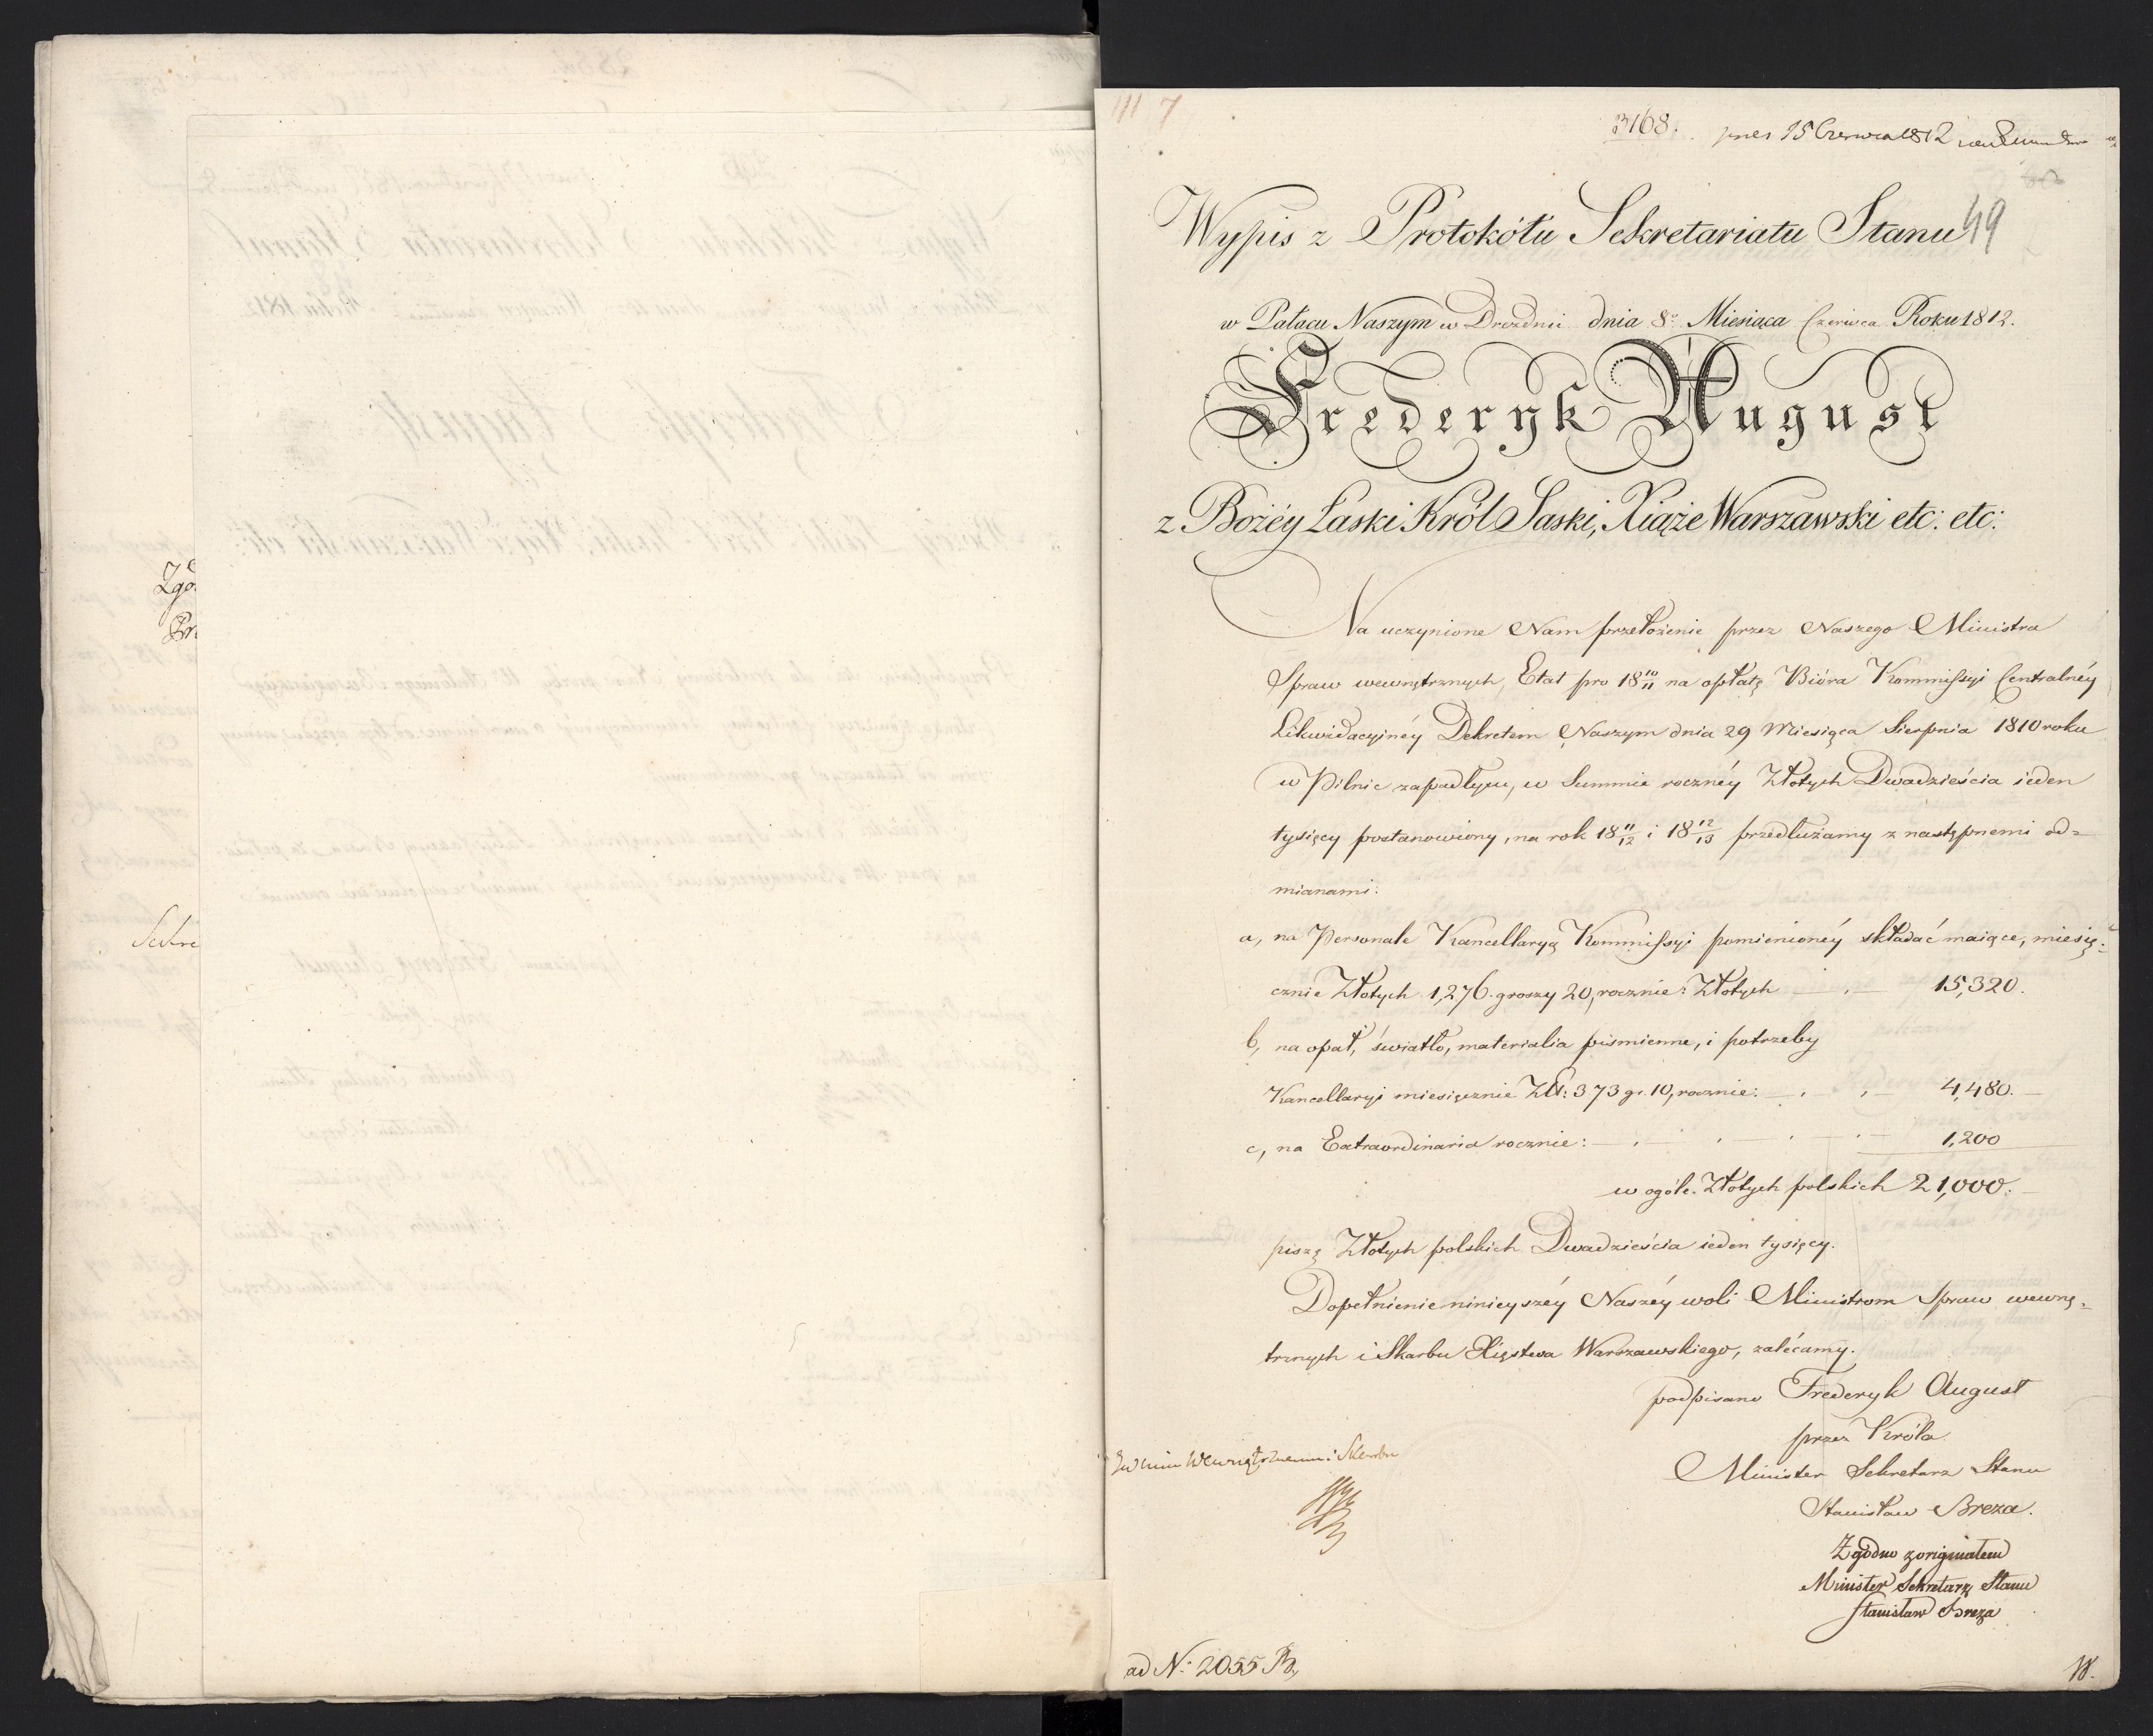 Zgo
Pr
Sekre
III 7
3168. pnes 15 Czerwca 1812
49
Wypis z Protokółu Sekretariatu Stanu
w Pałacu Naszym w Dreźnie dnia 8º Miesiąca Czerwca Roku 1812.
Frederyk August
z Bożéy Łaski Król Saski, Xiąże Warszawski etc: etc:
Na uczynione Nam przełożenie przez Naszego Ministra
Spraw wewnętrznych, Etat pro 18 10/11 na opłatę Bióra Kommissyi Centralnéy
Likwidacyinéy Dekretem Naszym dnia 29 Miesiąca Sierpnia 1810 roku
w Pilnic zapadłym, w Summie rocznéy Złotych Dwadzieścia ieden
tysięcy postanowiony, na rok 18 11/12 i 18 12/13 przedłużamy z następnemi od=
mianami:
a, na Personale Kancellaryą Kommissyi pomienionéy składać maiące, miesię=
cznie Złotych 1,276. groszy 20, rocznie: Złotych 15,320.
b, na opał, światło, materialia piśmienne, i potrzeby
Kancellaryi miesięcznie Zł: 373 gr. 10, rocznie: 4,480.
c, na Extraordinaria rocznie: 1,200
w ogóle. Złotych polskich 21,000.
piszę Złotych polskich Dwadzieścia ieden tysięcy.
Dopełnienie ninieyszéy Naszéy woli Ministrom Spraw wewnę=
trznych i Skarbu Xięstwa Warszawskiego, zalécamy.
podpisano Frederyk August
przez Króla
Minister Sekretarz Stanu
Stanisław Breza.
Zgodno z originałem
Minister Sekretarz Stanu
Stanisław Breza
Wewnętrznemu i Skarbu
ad N: 2055
W.